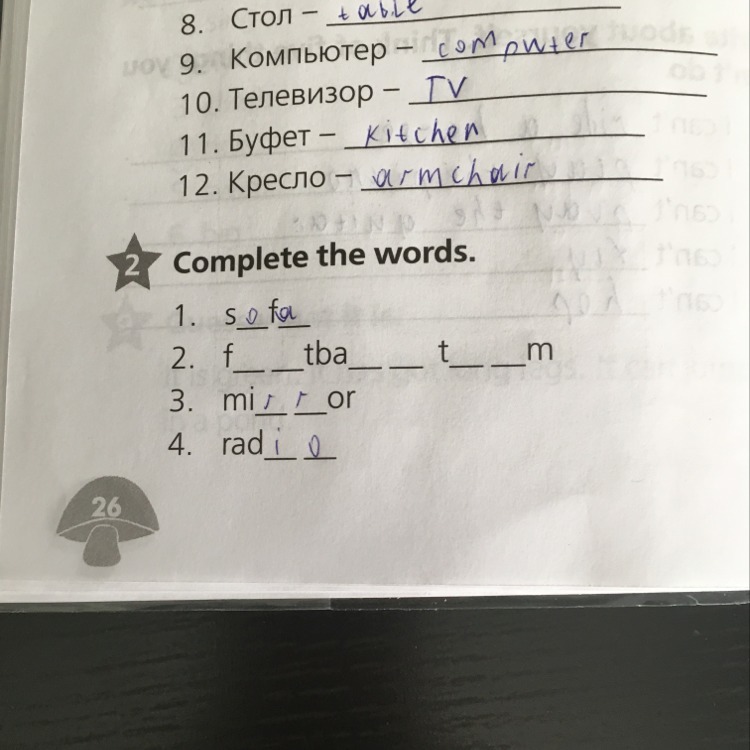 8. Стол – table
9. Компьютер – computer
10. Телевизор – TV
11. Буфет – kitchen
12. Кресло – armchair
2 Complete the words.
1. s_o_fa
2. f__ __tba__ __ t____m
3. mi r r or
4. rad i o
26